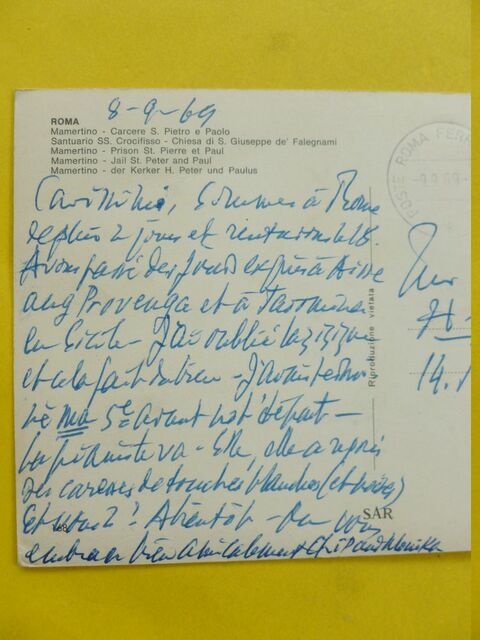 8-9-69
ROMA
Mamertino - Carcere S. Pietro e Paolo
Santuario SS. Crocifisso - Chiesa di S. Giuseppe de' Falegnami
Mamertino - Prison St. Pierre et Paul
Mamertino - Jail St. Peter and Paul
Mamertino - der Kerker H. Peter und Paulus
Sommes à Rome
depuis 2 jours et rentrerons le 18.
Avons passé des jours exquis à Aix
en Provence et à Taormina
en Sicile - J'ai oublié la
et cela fait du bien - J'avais
ma 5e avant not' départ -
va - Elle, elle a repris
ses caresses de touches blanches (et noires)
Et vous? A bientôt - On vous
embrasse bien amicalement
168
SAR
Riproduzione vietata
POSTE ROMA FERR
-9.9.69-
14.